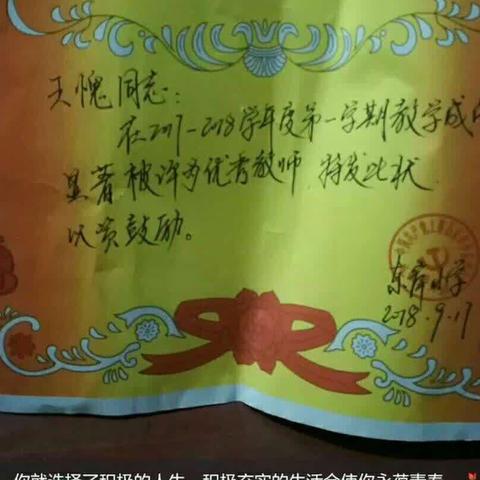 王愧同志：
在2017-2018学年度第一学期教学成
显著被评为优秀教师 特发此状
以资鼓励。
东岸小学
2018.9.17
你就选择了积极的人生，积极充实的生活会使你永葆青春